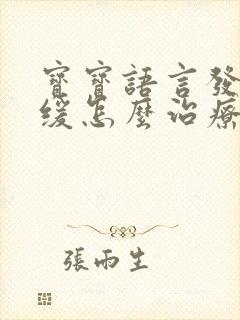 寶寶語言發
緩怎麼治療
張雨生